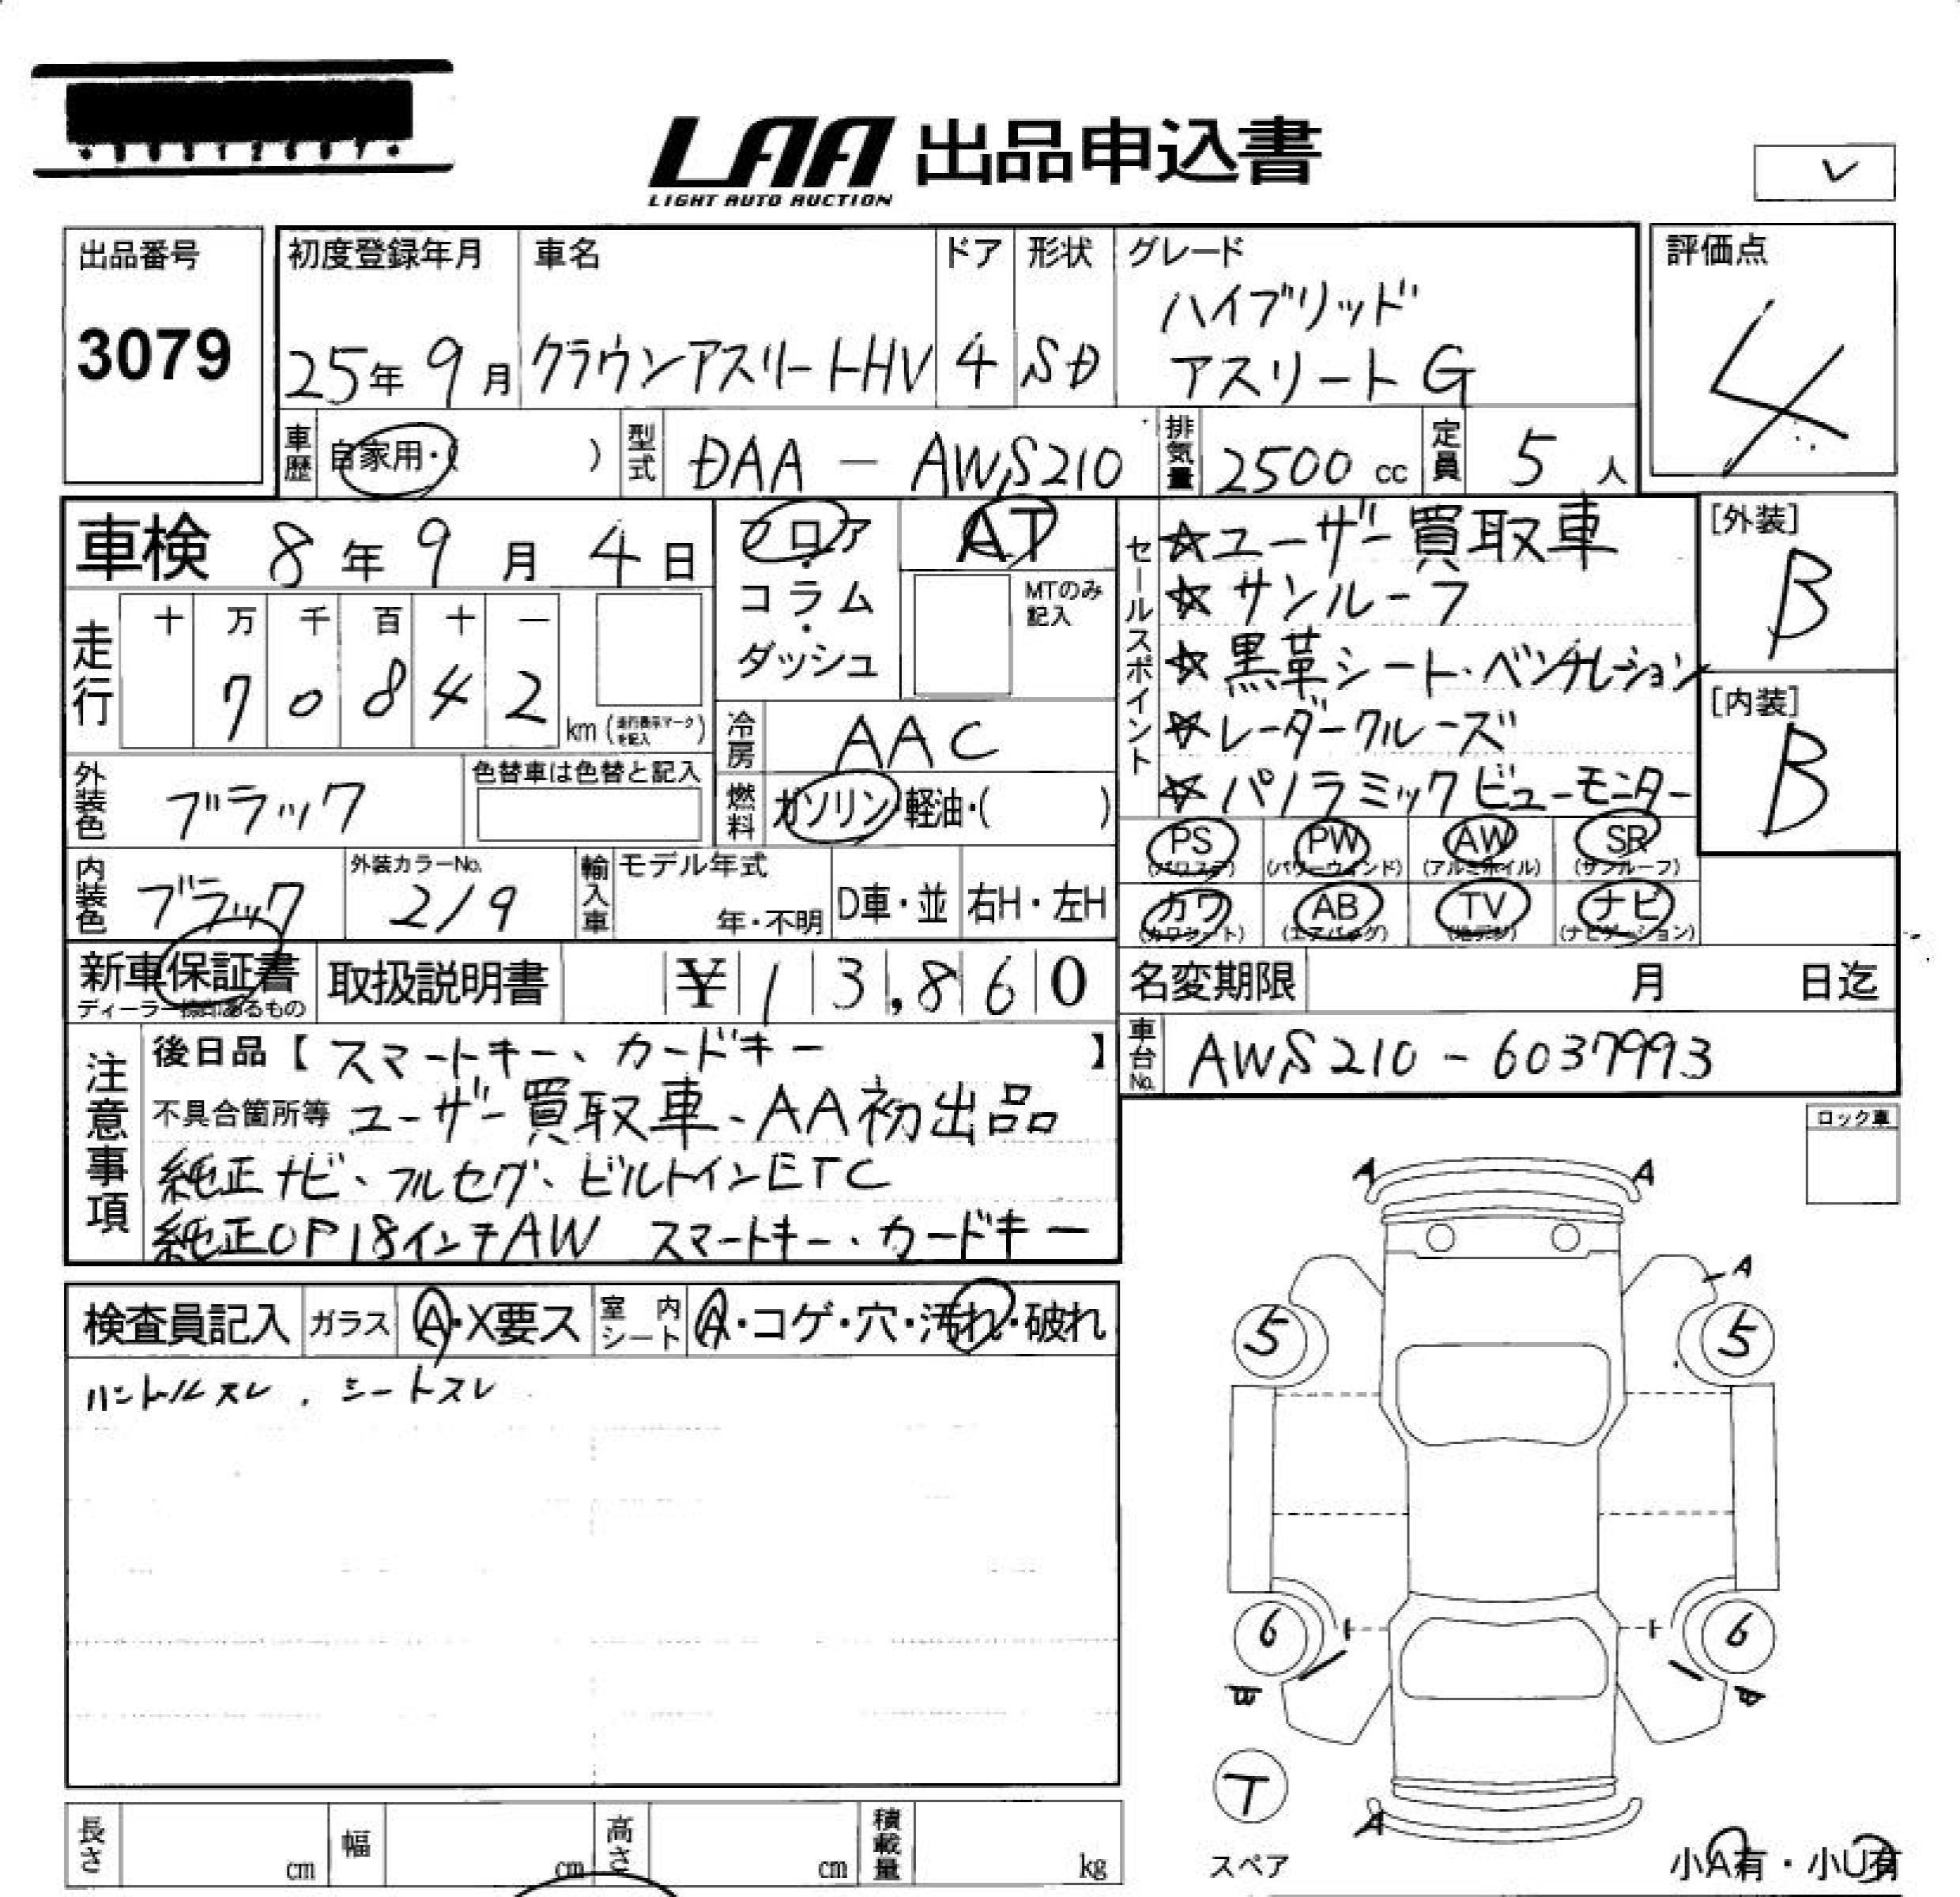 LAA 出品申込書
LIGHT AUTO AUCTION
レ
出品番号
3079
初度登録年月
25年9月
車名
クラウンアスリートHV
ドア
4
形状
SD
グレード
ハイブリッド
アスリートG
評価点
4
車歴 自家用・( )
型式 DAA-AWS210
排気量 2500 cc
定員 5人
車検 8年9月4日
フロア・コラム・ダッシュ
AT
MTのみ記入
走行
十 万 千 百 十 一
7 0 8 4 2 km (走行表示マークを記入)
冷房 AAC
燃料 ガソリン・軽油・( )
外装色 ブラック
色替車は色替と記入
内装色 ブラック
外装カラーNo.
219
輸入車 モデル年式
年・不明
D車・並
右H・左H
新車保証書
取扱説明書
¥13,860
セールスポイント
☆ユーザー買取車
☆サンルーフ
☆黒革シート・ベンチレーション
☆レーダークルーズ
☆パノラミックビューモニター
[外装]
B
[内装]
B
PS (パワステ)
PW (パワーウィンド)
AW (アルミホイル)
SR (サンルーフ)
カワ (カワシート)
AB (エアバッグ)
TV (地デジ)
ナビ (ナビゲーション)
名変期限 月 日迄
車台No. AWS210-6037993
注意事項
後日品【スマートキー、カードキー】
不具合箇所等 ユーザー買取車、AA初出品
純正ナビ、フルセグ、ビルトインETC
純正OP18インチAW スマートキー、カードキー
ロック車
検査員記入
ガラス A・X要ス
室内シート A・コゲ・穴・汚れ・破れ
ハンドルスレ、シートスレ
A
A
A
5
5
6
6
T
スペア
A
小A有・小U有
長さ cm
幅 cm
高さ cm
積載量 kg